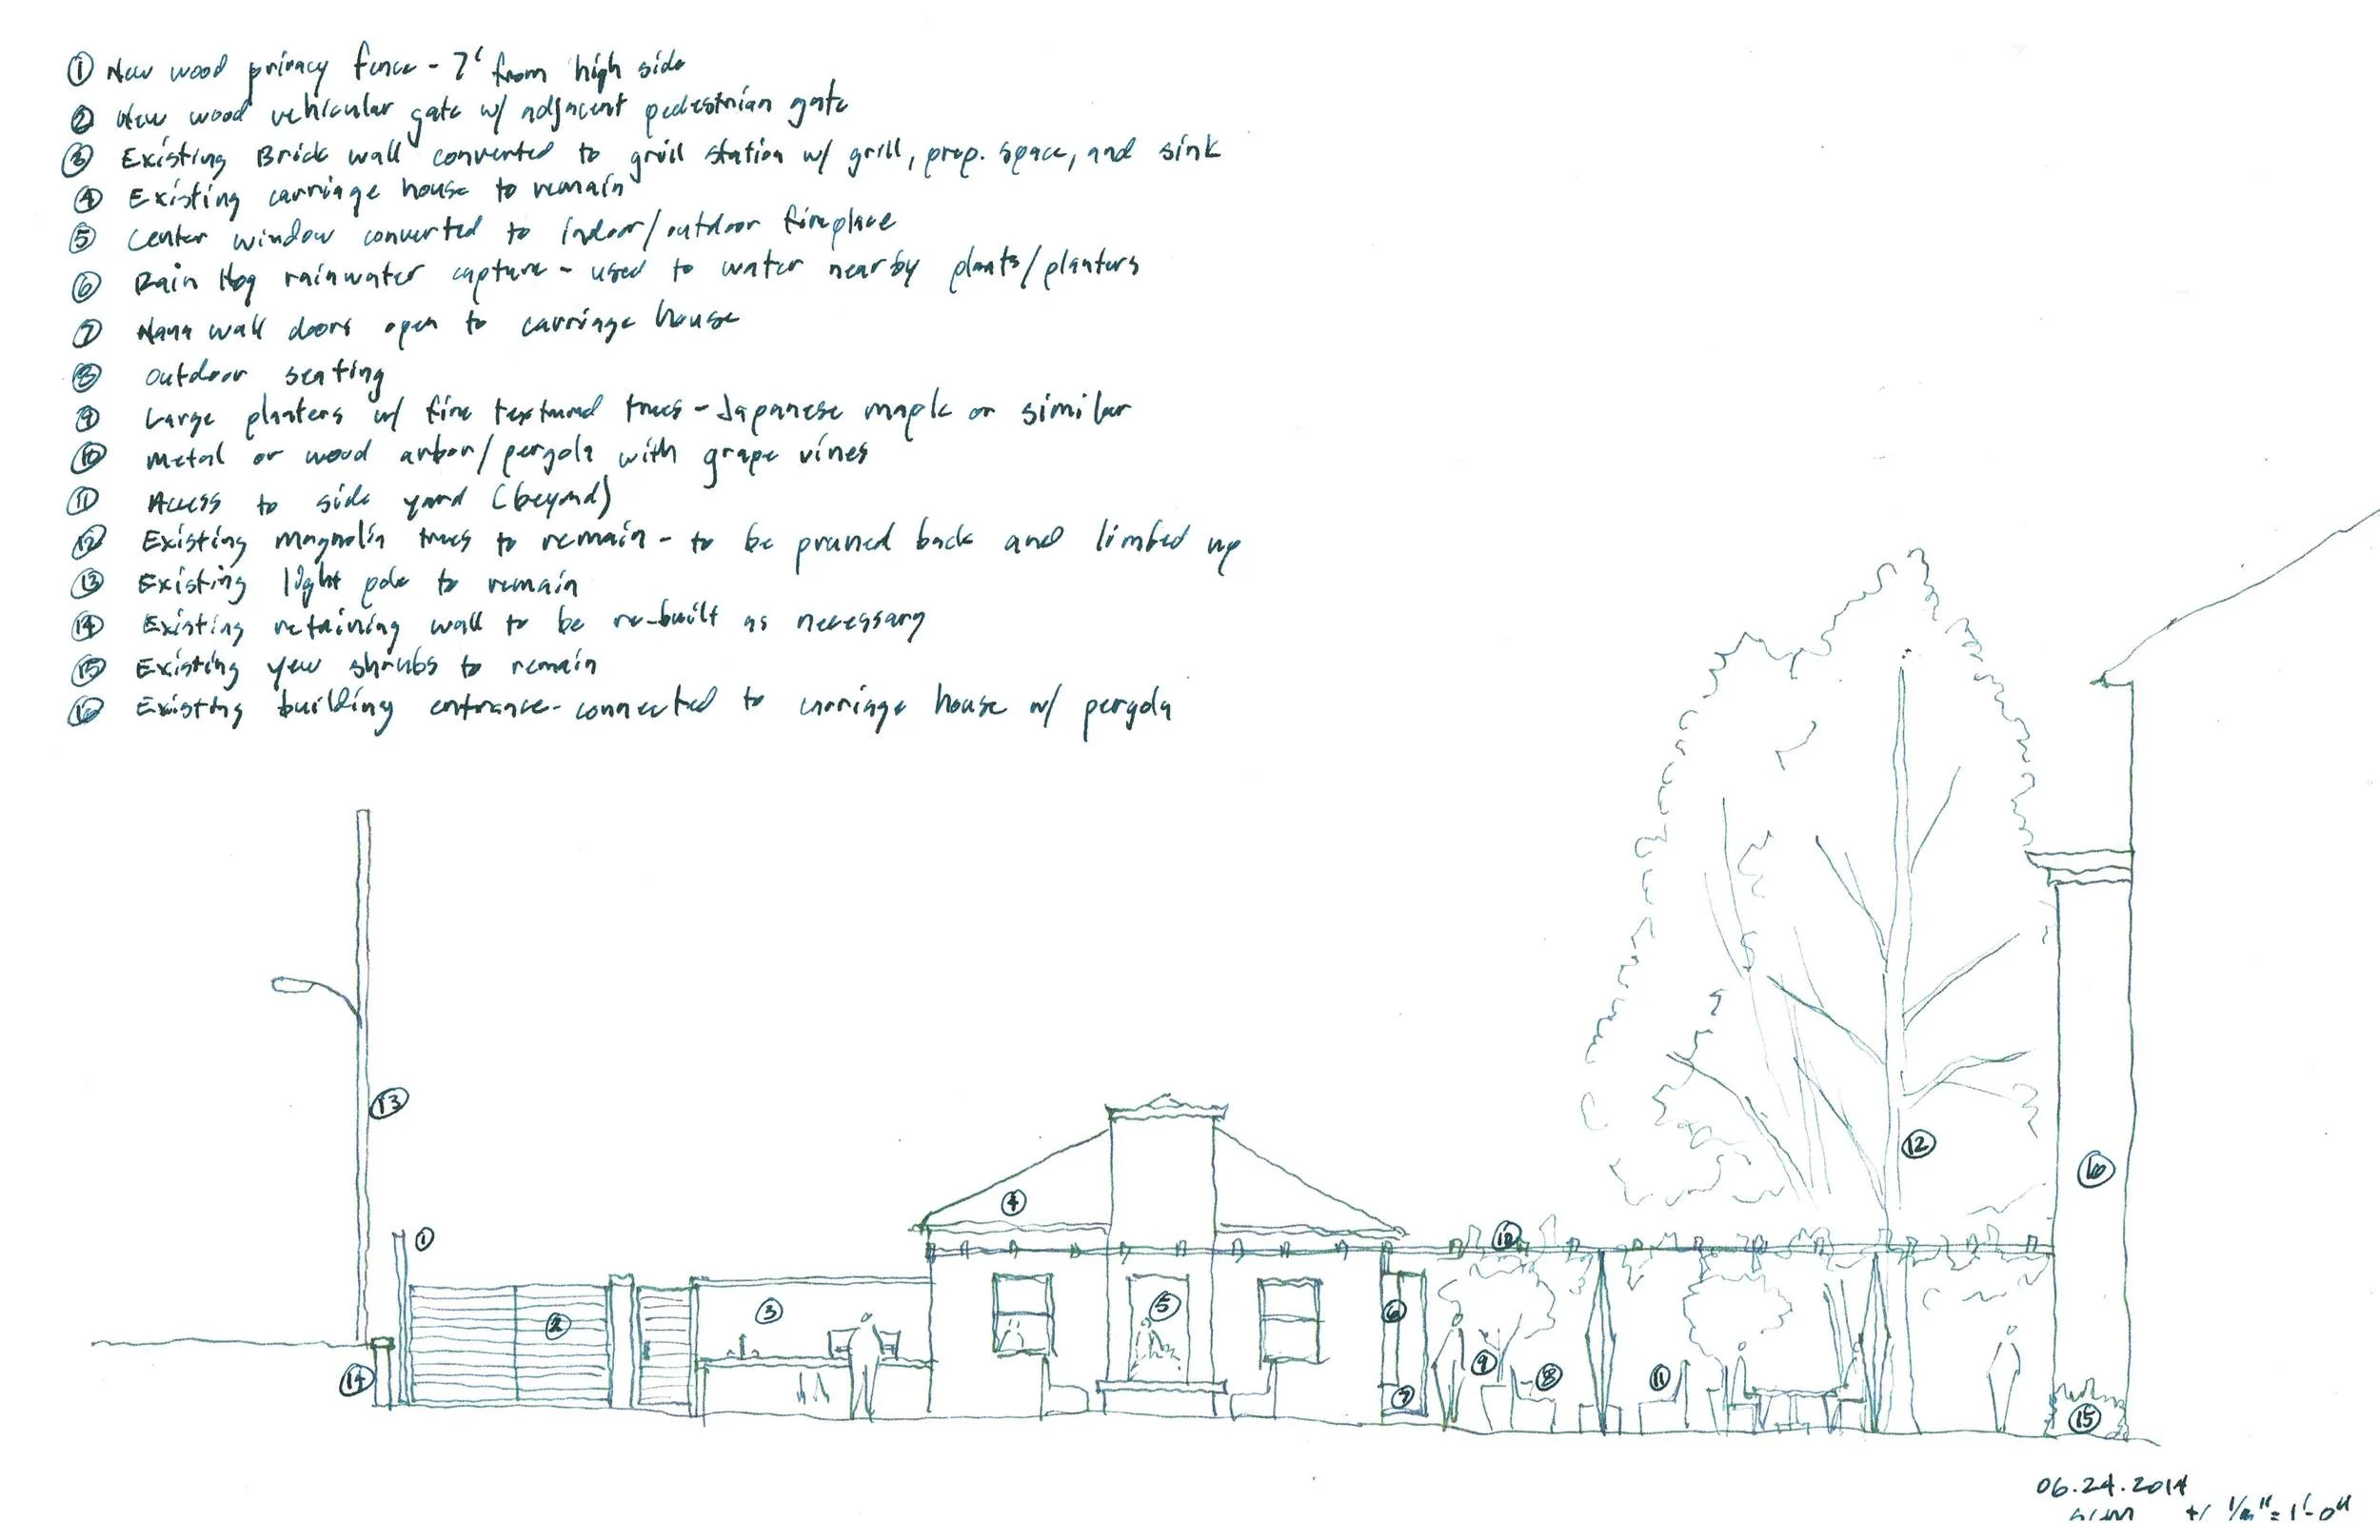 ① New wood privacy fence - 7' from high side
② New wood vehicular gate w/ adjacent pedestrian gate
③ Existing Brick wall converted to grill station w/ grill, prep. space, and sink
④ Existing carriage house to remain
⑤ Center window converted to indoor/outdoor fireplace
⑥ Rain Hog rainwater capture - used to water nearby plants/planters
⑦ Nana wall doors open to carriage house
⑧ Outdoor seating
⑨ Large planters w/ fine textured trees - Japanese maple or similar
⑩ Metal or wood arbor/pergola with grape vines
⑪ Access to side yard (beyond)
⑫ Existing magnolia trees to remain - to be pruned back and limbed up
⑬ Existing light pole to remain
⑭ Existing retaining wall to be re-built as necessary
⑮ Existing yew shrubs to remain
⑯ Existing building entrance - connected to carriage house w/ pergola
⑬
⑫
⑯
④
①
⑩
② ③ ⑤ ⑥
⑭ ⑦ ⑨ ⑧ ⑪ ⑮
06.24.2014
+/ 1/8" = 1'-0"